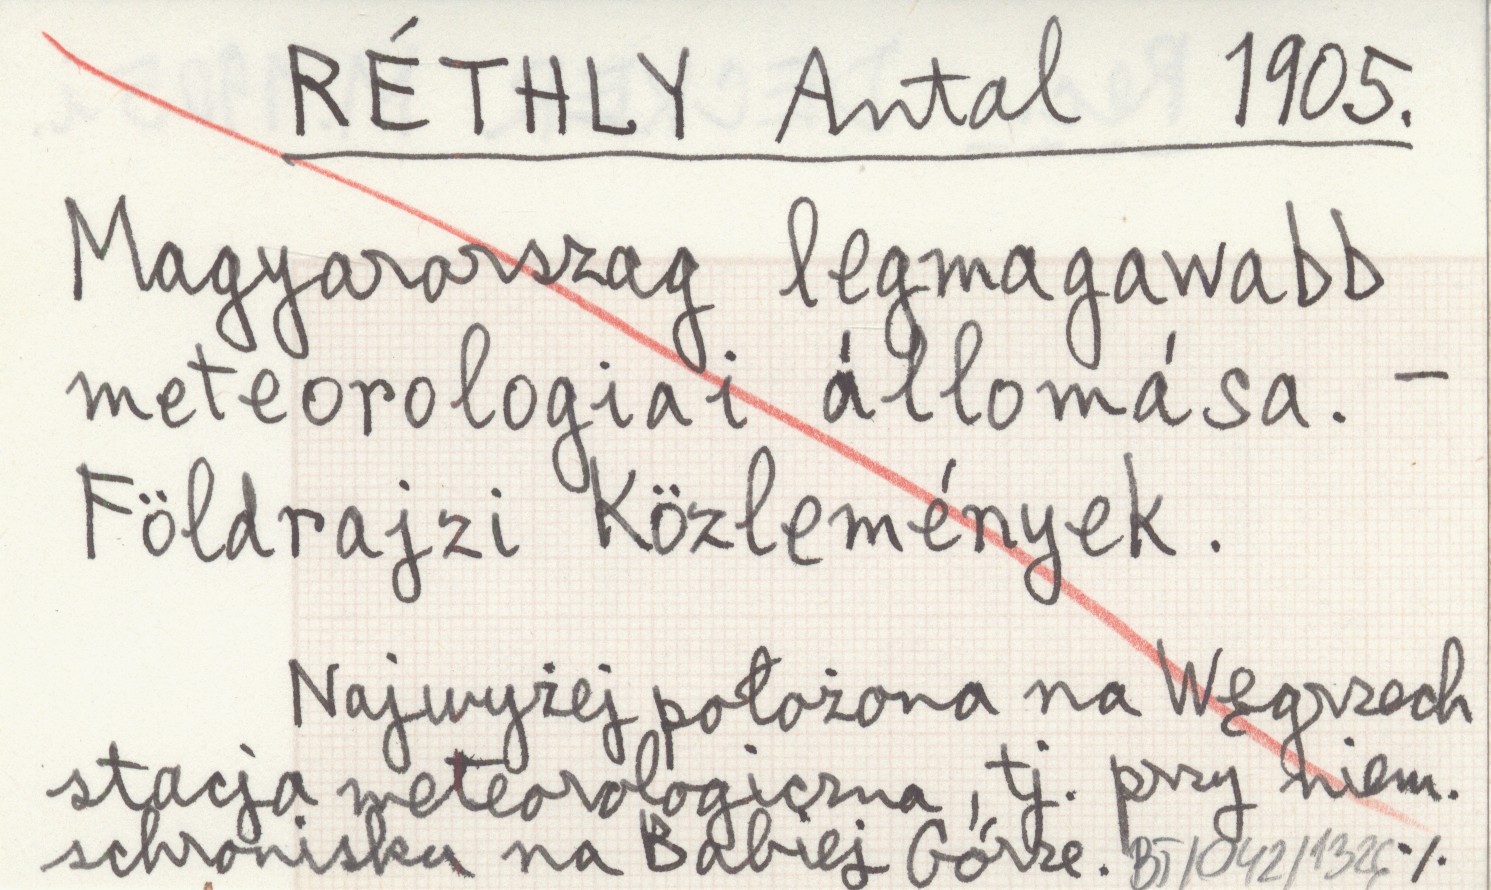 RÉTHLY Antal 1905.
Magyarorszag legmagawabb
meteorologiai állomása. –
Földrajzi Közlemények.
Najwyżej położona na Węgrzech
stacja meteorologiczna, tj. przy niem.
schronisku na Babiej Górze. BT/042/1326 ·/.